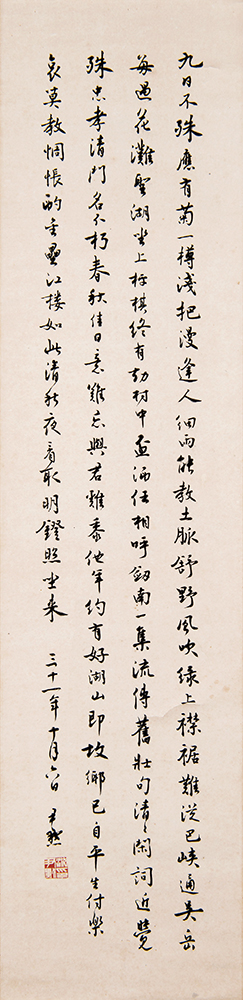 九日不殊應有菊一樽淺把漫逢人細雨能教土脈舒野風吹綠上襟裾難從巴峽通吳岳
每過花灘聖湖坐上枰棋終有劫村中盃酒任相呼劔南一集流傳舊壯句清〻閑詞近覺
殊忠孝清門名不朽春秋佳日意難忘與君雞黍他年約有好湖山即故鄉已自平生付樂
哀莫教惆悵酌金罍江樓如此清秋夜看取明鐙照坐來 三十一年十月六日 尹默